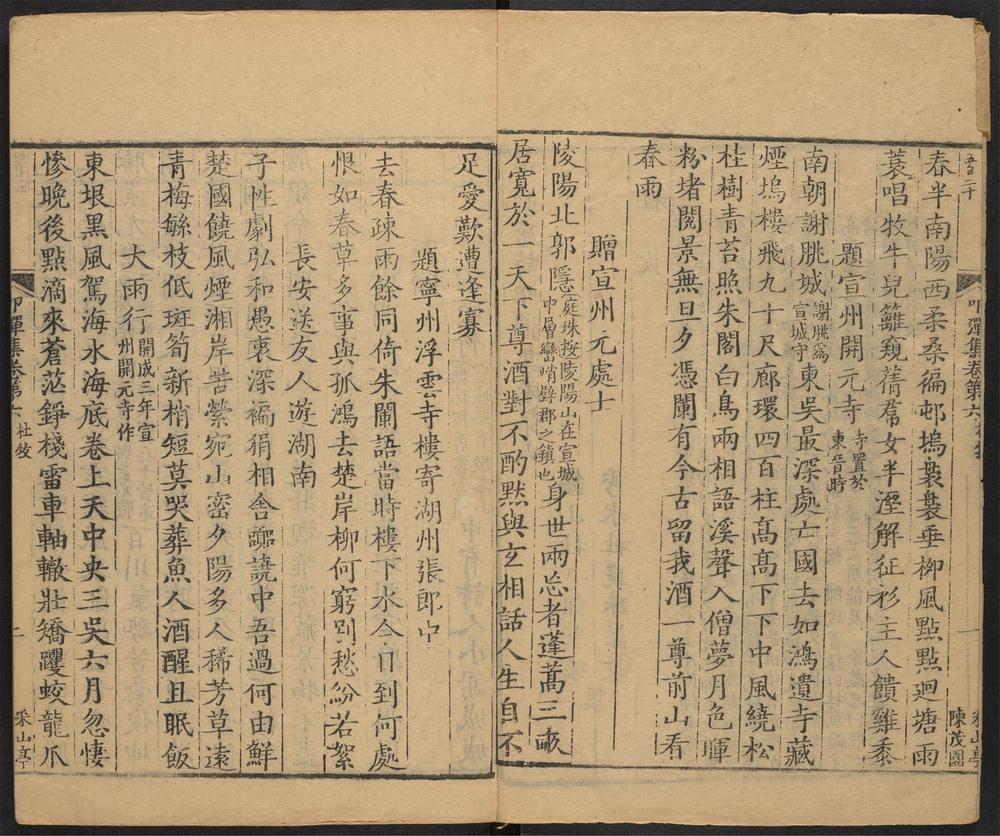 春半南陽西柔桑徧邨塢裊裊垂柳風點點廻塘雨
蓑唱牧牛兒籬窺蒨帬女半溼解征衫主人饋雞黍
題宣州開元寺寺置於東晉時
南朝謝朓城謝朓為宣城守東吳最深處亡國去如鴻遺寺藏
煙塢樓飛九十尺廊環四百柱高高下下中風繞松
桂樹青苔照朱閣白鳥兩相語溪聲入僧夢月色暉
粉堵閱景無旦夕憑闌有今古留我酒一尊前山看
春雨
贈宣州元處士
陵陽北郭隱庭珠按陵陽山在宣城中層巒峭壁郡之鎮也身世兩忘者蓬蒿三畝
居寬於一天下尊酒對不酌默與玄相話人生自不
足愛歎遭逢寡
題寧州浮雲寺樓寄湖州張郎中
去春疎雨餘同倚朱闌語當時樓下水今日到何處
恨如春草多事與孤鴻去楚岸柳何窮別愁紛若絮
長安送友人遊湖南
子性劇弘和愚衷深褊狷相舍囂譊中吾過何由鮮
楚國饒風煙湘岸苦縈宛山密夕陽多人稀芳草遠
青梅繁枝低斑筍新梢短莫哭葬魚人酒醒且眠飯
大雨行開成三年宣州開元寺作
東垠黑風駕海水海底卷上天中央三吳六月忽悽
慘晚後點滴來蒼茫錚棧雷車軸轍壯矯躩蛟龍爪
叩彈集卷第六 杜牧
二
采山亭
陳茂國